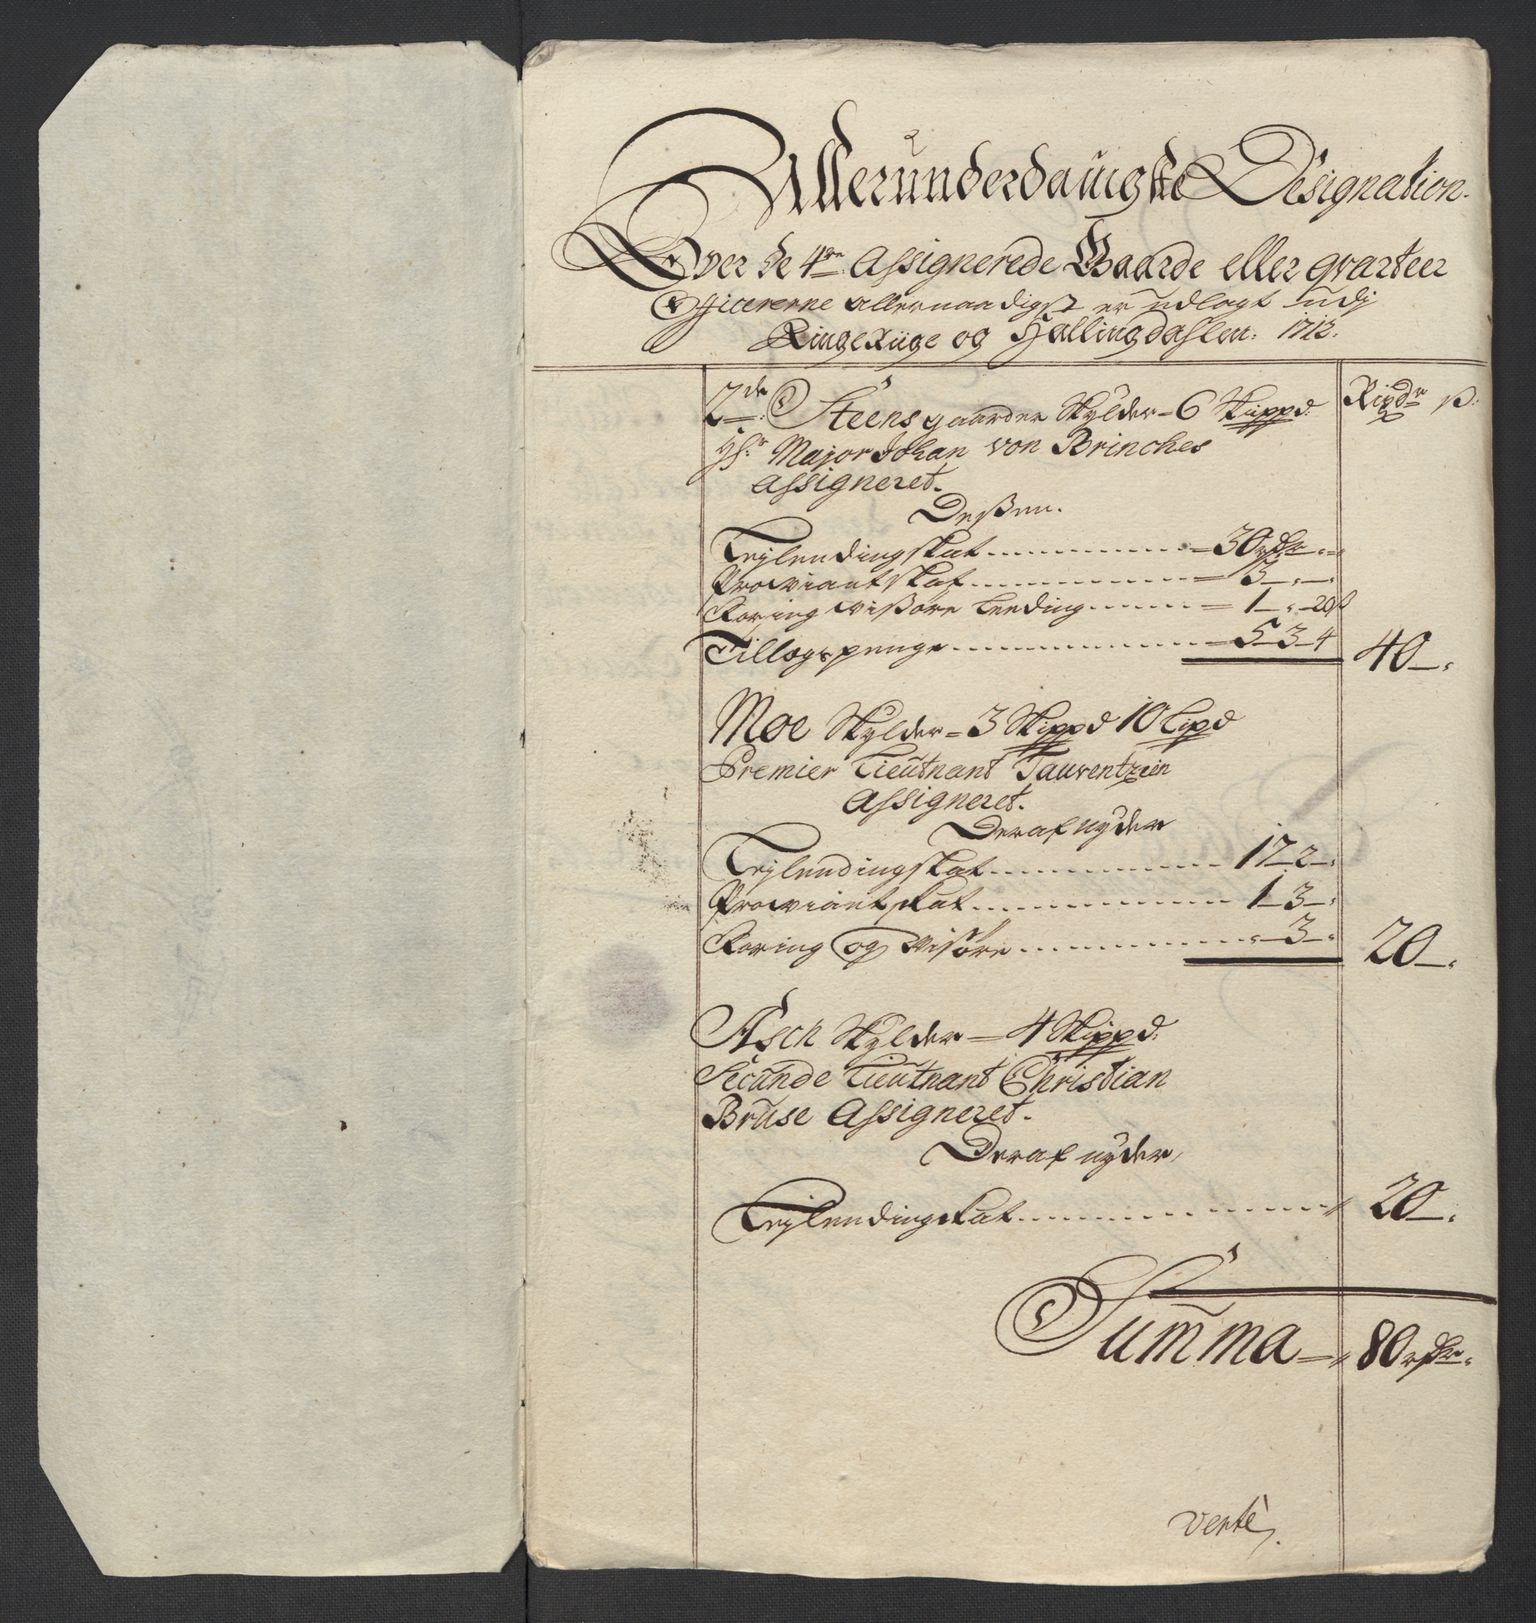 Allerunderdanigste Designation.
Over de 4re Assignerede Gaarde eller qvarteer
Officererne allernaadigst er udlagt udj
Ringeriige og Hallingdahlen: 1713.
Rixdr ß:
2de Steens gaarder skylder = 6 Skippd:
Hr: Major Johan von Brinches
Assigneret.
Deßen.
Lejlendingskat = 30 rdr " "
Proviantskat = 3 " "
Koring Visøre Leeding = 1 " 20 ß
Tillegspenge = 5 3 4 40 "
Moe skylder = 3 Skippd 10 Lispd
Premier Lieutnant Tauventzien
Assigneret.
Deraf nyder
Lejlendingskat 17 2 "
Proviantskat 1 3 "
Koring og Visøre " 3 " 20 "
Asch skylder = 4 Skippd:
Secunde Lieutnant Christian
Bruse Assigneret.
Deraf nyder,
Lejlendingskat 20 "
Summa = 80 rdr "
verte